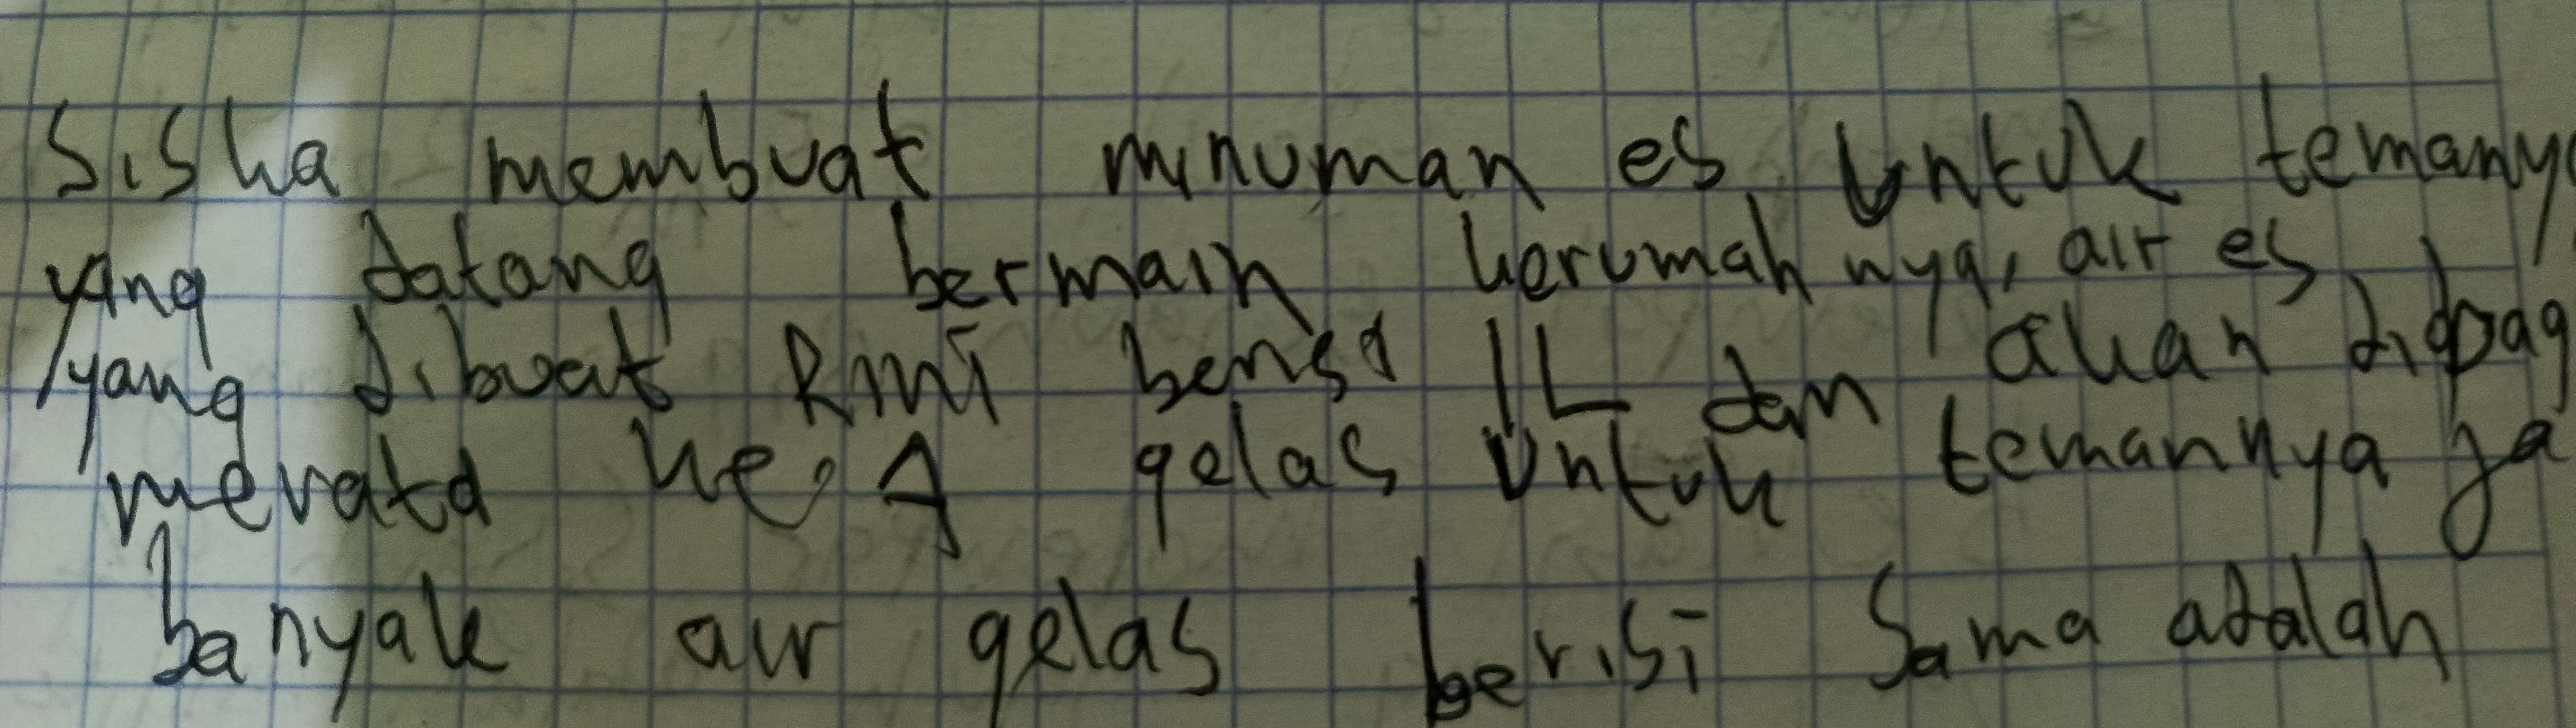 Siska membuat minuman es untuk temanya
yang datang bermain kerumah nya, air es
yang dibuat Rmi berisi 1L dan akan dibag
merata ke 4 gelas untuk temannya ja
banyak air gelas berisi Sama adalah